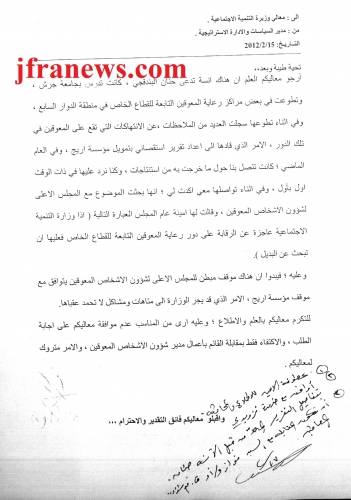 الى : معالي وزيرة التنمية الاجتماعية .
من : مدير السياسات والادارة الاستراتيجية .
التاريخ: 2012/2/15
jfranews.com
تحية طيبة وبعد،،،
أرجو معاليكم العلم ان هناك انسة تدعى حنان البندقجي ، كانت تدرس بجامعة جرش ،
وتطوعت في بعض مراكز رعاية المعوقين التابعة للقطاع الخاص في منطقة الدوار السابع ،
وفي اثناء تطوعها سجلت العديد من الملاحظات ،عن الانتهاكات التي تقع على المعوقين في
تلك الدور ، الامر الذي قادها الى اعداد تقرير استقصائي بتمويل مؤسسة اريج ، وفي العام
الماضي ؛ كانت تتصل بنا حول ما خرجت به من استنتاجات ، وكنا نرد عليها في ذات الوقت
اول بأول ، وفي اثناء تواصلها معي اكدت لي ؛ انها بحثت الموضوع مع المجلس الاعلى
لشؤون الاشخاص المعوقين ، وقالت لها امينة عام المجلس العبارة التالية ( اذا وزارة التنمية
الاجتماعية عاجزة عن الرقابة على دور رعاية المعوقين التابعة للقطاع الخاص فعليها ان
تبحث عن البديل ).
وعليه ؛ فيبدوا ان هناك موقف مبطن للمجلس الاعلى لشؤون الاشخاص المعوقين يتوافق مع
موقف مؤسسة اريج ، الامر الذي قد يجر الوزارة الى متاهات ومشاكل لا تحمد عقباها.
للتكرم معاليكم بالعلم والاطلاع ؛ وعليه ارى من المناسب عدم موافقة معاليكم على اجابة
الطلب ، والاكتفاء فقط بمقابلة القائم بأعمال مدير شؤون الاشخاص المعوقين ، والامر متروك
لمعاليكم .
واقبلو معاليكم فائق التقدير والاحترام ،،،